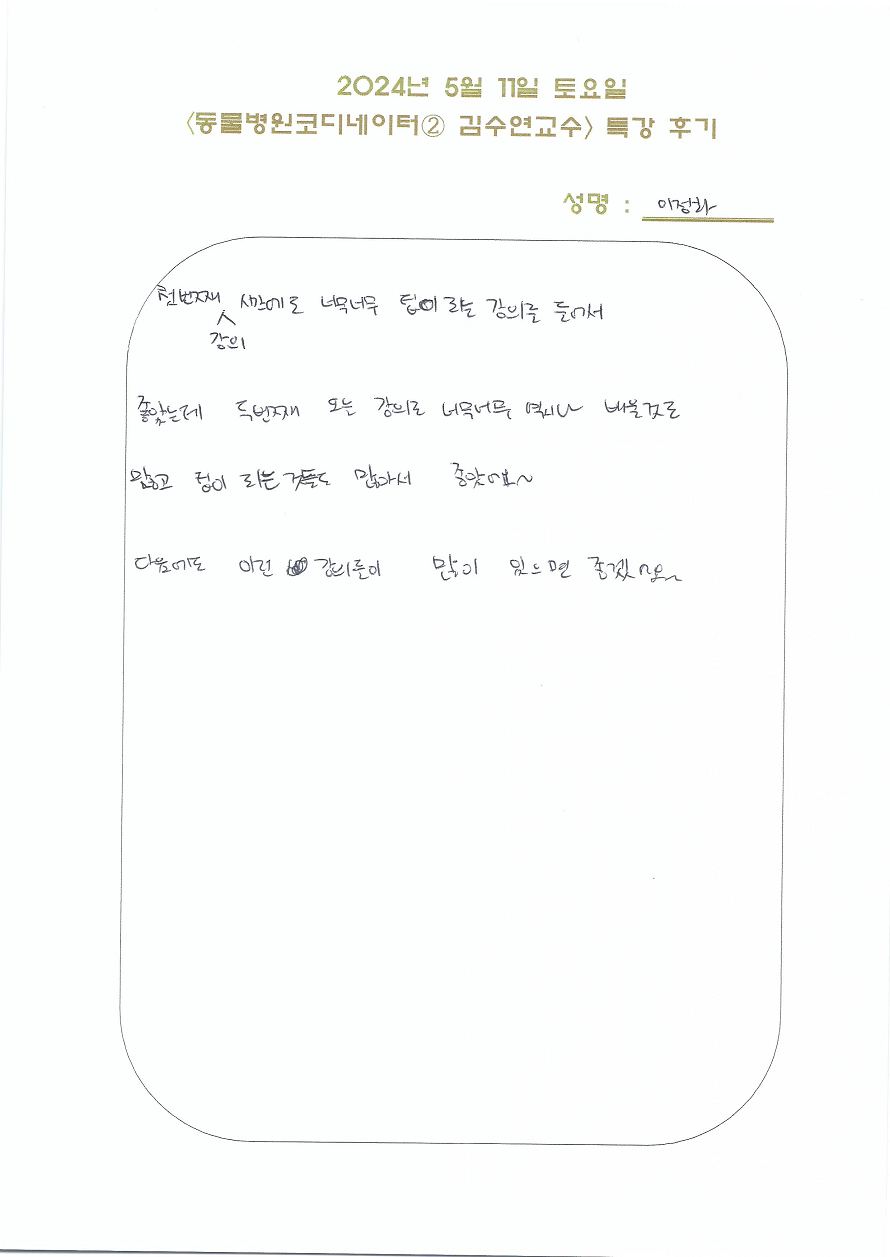 2024년 5월 11일 토요일
<동물병원코디네이터② 김수연교수> 특강 후기
성명 : 이정화
첫번째 강의 시간에도 너무너무 팁이 되는 강의를 들어서
좋았는데 두번째 오는 강의도 너무너무 역시나 배울것도
많고 팁이 되는것들도 많아서 좋았어요~
다음에도 이런 강의들이 많이 있으면 좋겠어요~